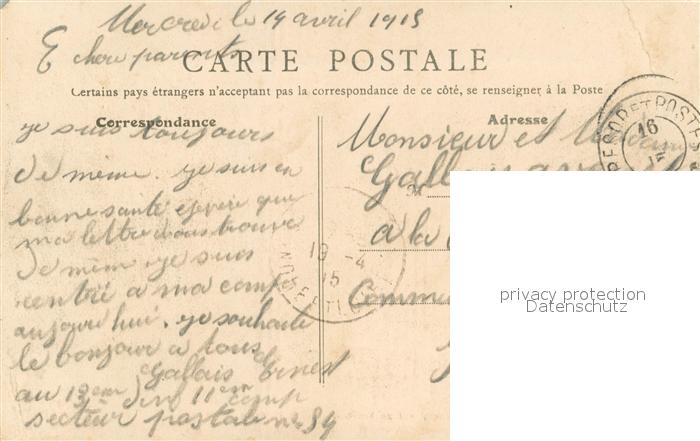 Mercredi le 14 avril 1915
chere parents
CARTE POSTALE
Certains pays étrangers n'acceptant pas la correspondance de ce côté, se renseigner à la Poste
Correspondance
je suis toujours
de meme. je suis en
bonne santé espere que
ma lettre vous trouve
de mêm. je suis
rentré a ma comp
aujourd hui. je souhaite
le bonjour a tous
Gallais Ernest
au 13em 11em comp
secteur postale no 84
Adresse
Monsieur et
a la
Commu
TRESOR ET POSTES
16
15
19 -4
15
privacy protection
Datenschutz